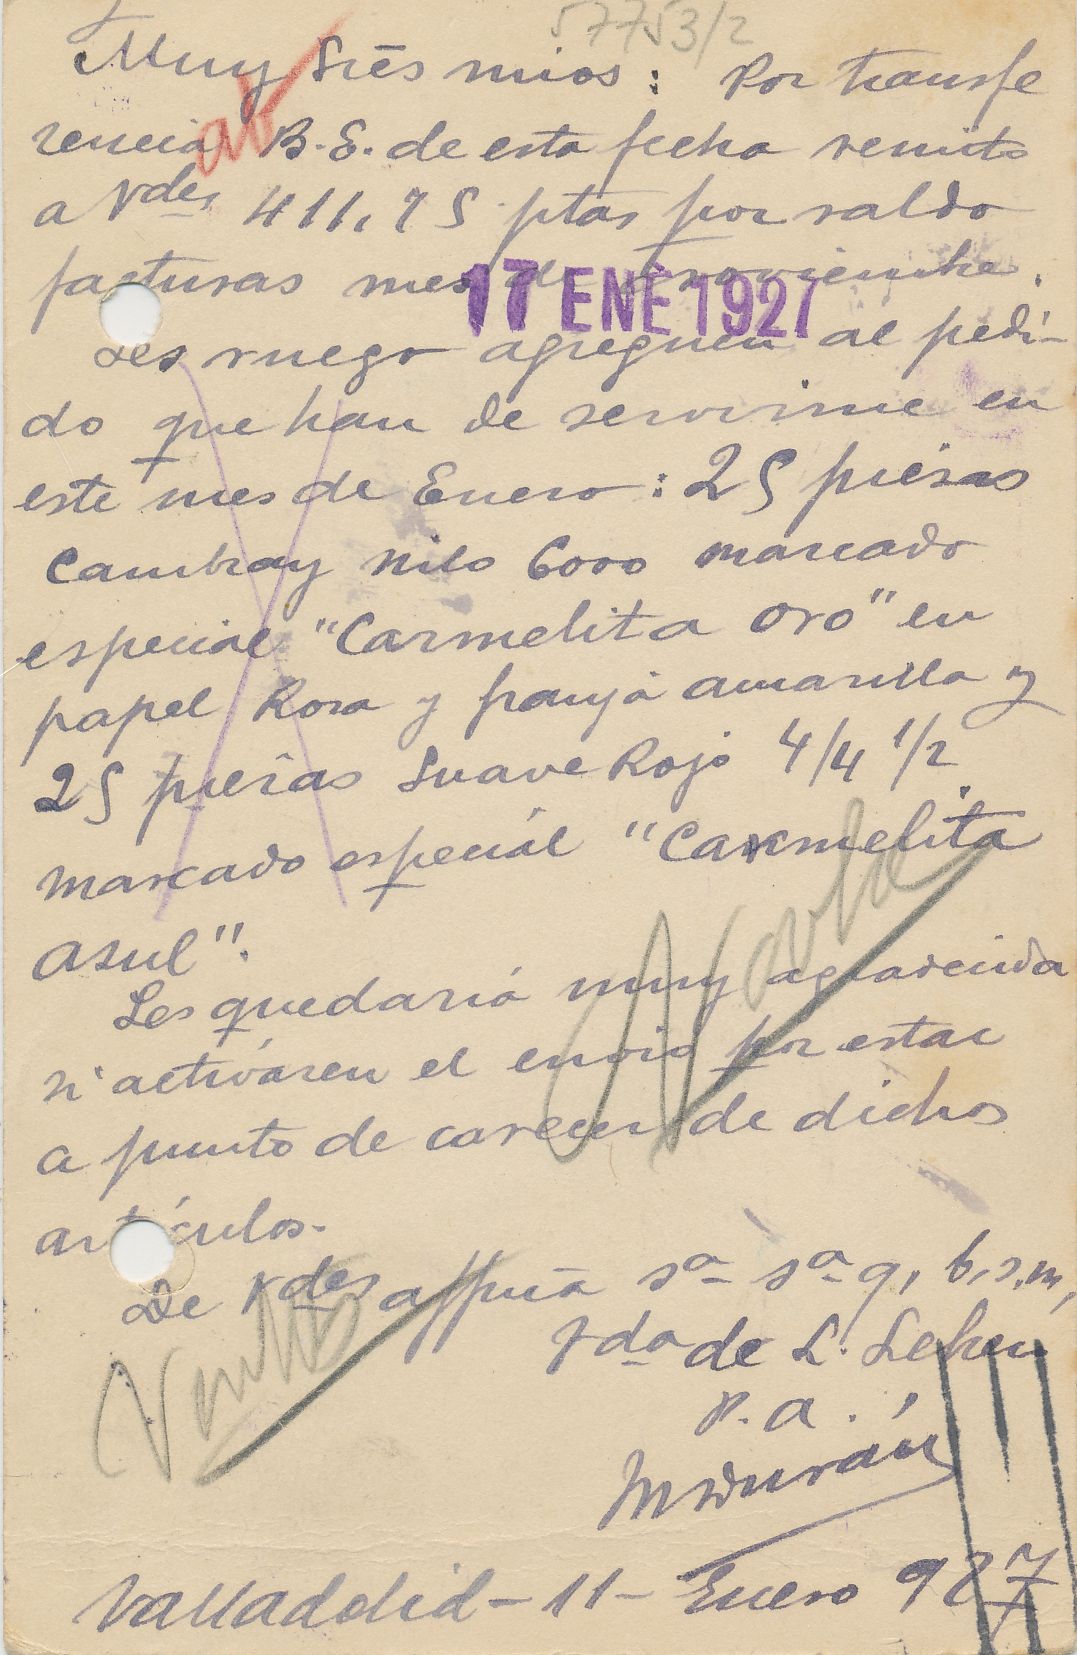 57753/2
Muy Srēs mios: Por transfe
rencia B.E. de esta fecha remito
ab
a Vdes 411,75 ptas por saldo
facturas mes de noviembre.
17 ENE 1927
Les ruego agreguen al pedi-
do que han de servirme en
este mes de Enero: 25 piesas
Cambray Nilo 6000 marcado
especial "Carmelita Oro" en
papel Rosa y franja amarilla y
25 piesas Suave Rojo 4/4 1/2
marcado especial "Carmelita
asul".
Les quedaria muy agradecida
si activasen el envio por estar
a punto de carecer de dichos
artículos.-
De Vdes affma sa sa q, b, s, m,
Vda de L.
P.A.
MDurán
Valladolid - 11 - Enero 927